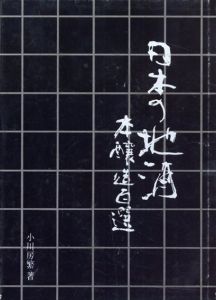 日本の地酒
本醸造百選
小川房繁著